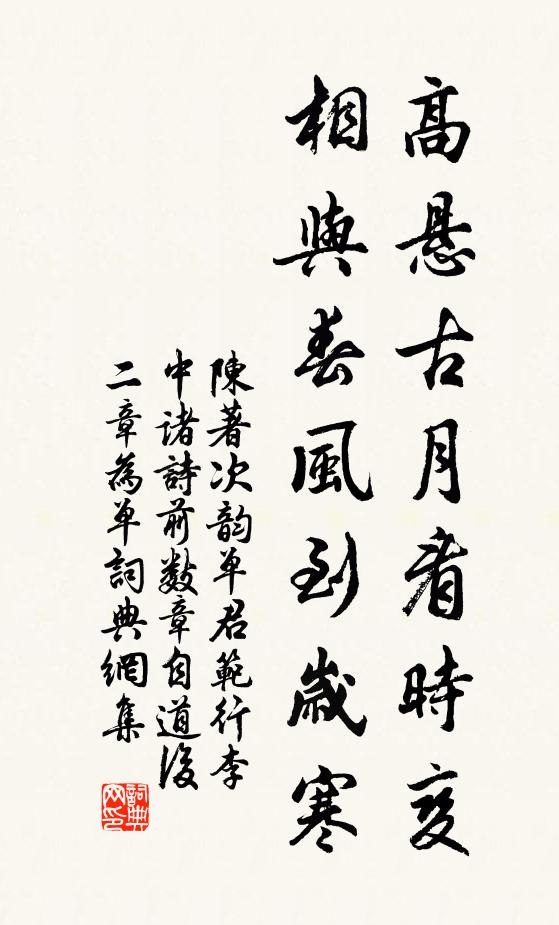 高悬古月看時变
相與春風到歲寒
陳著次韵单君範行李
中诸詩前数章自道後
二章為单詞典網集
詞典网印